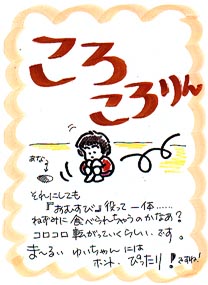 ころ
ころりん
あな
それにしても
『おむすび』役って一体……
ねずみに食べられちゃうのかなあ?
コロコロ転がっていくらしいです。
ま〜るい ゆいちゃんには
ホント、ぴったり!ですね!